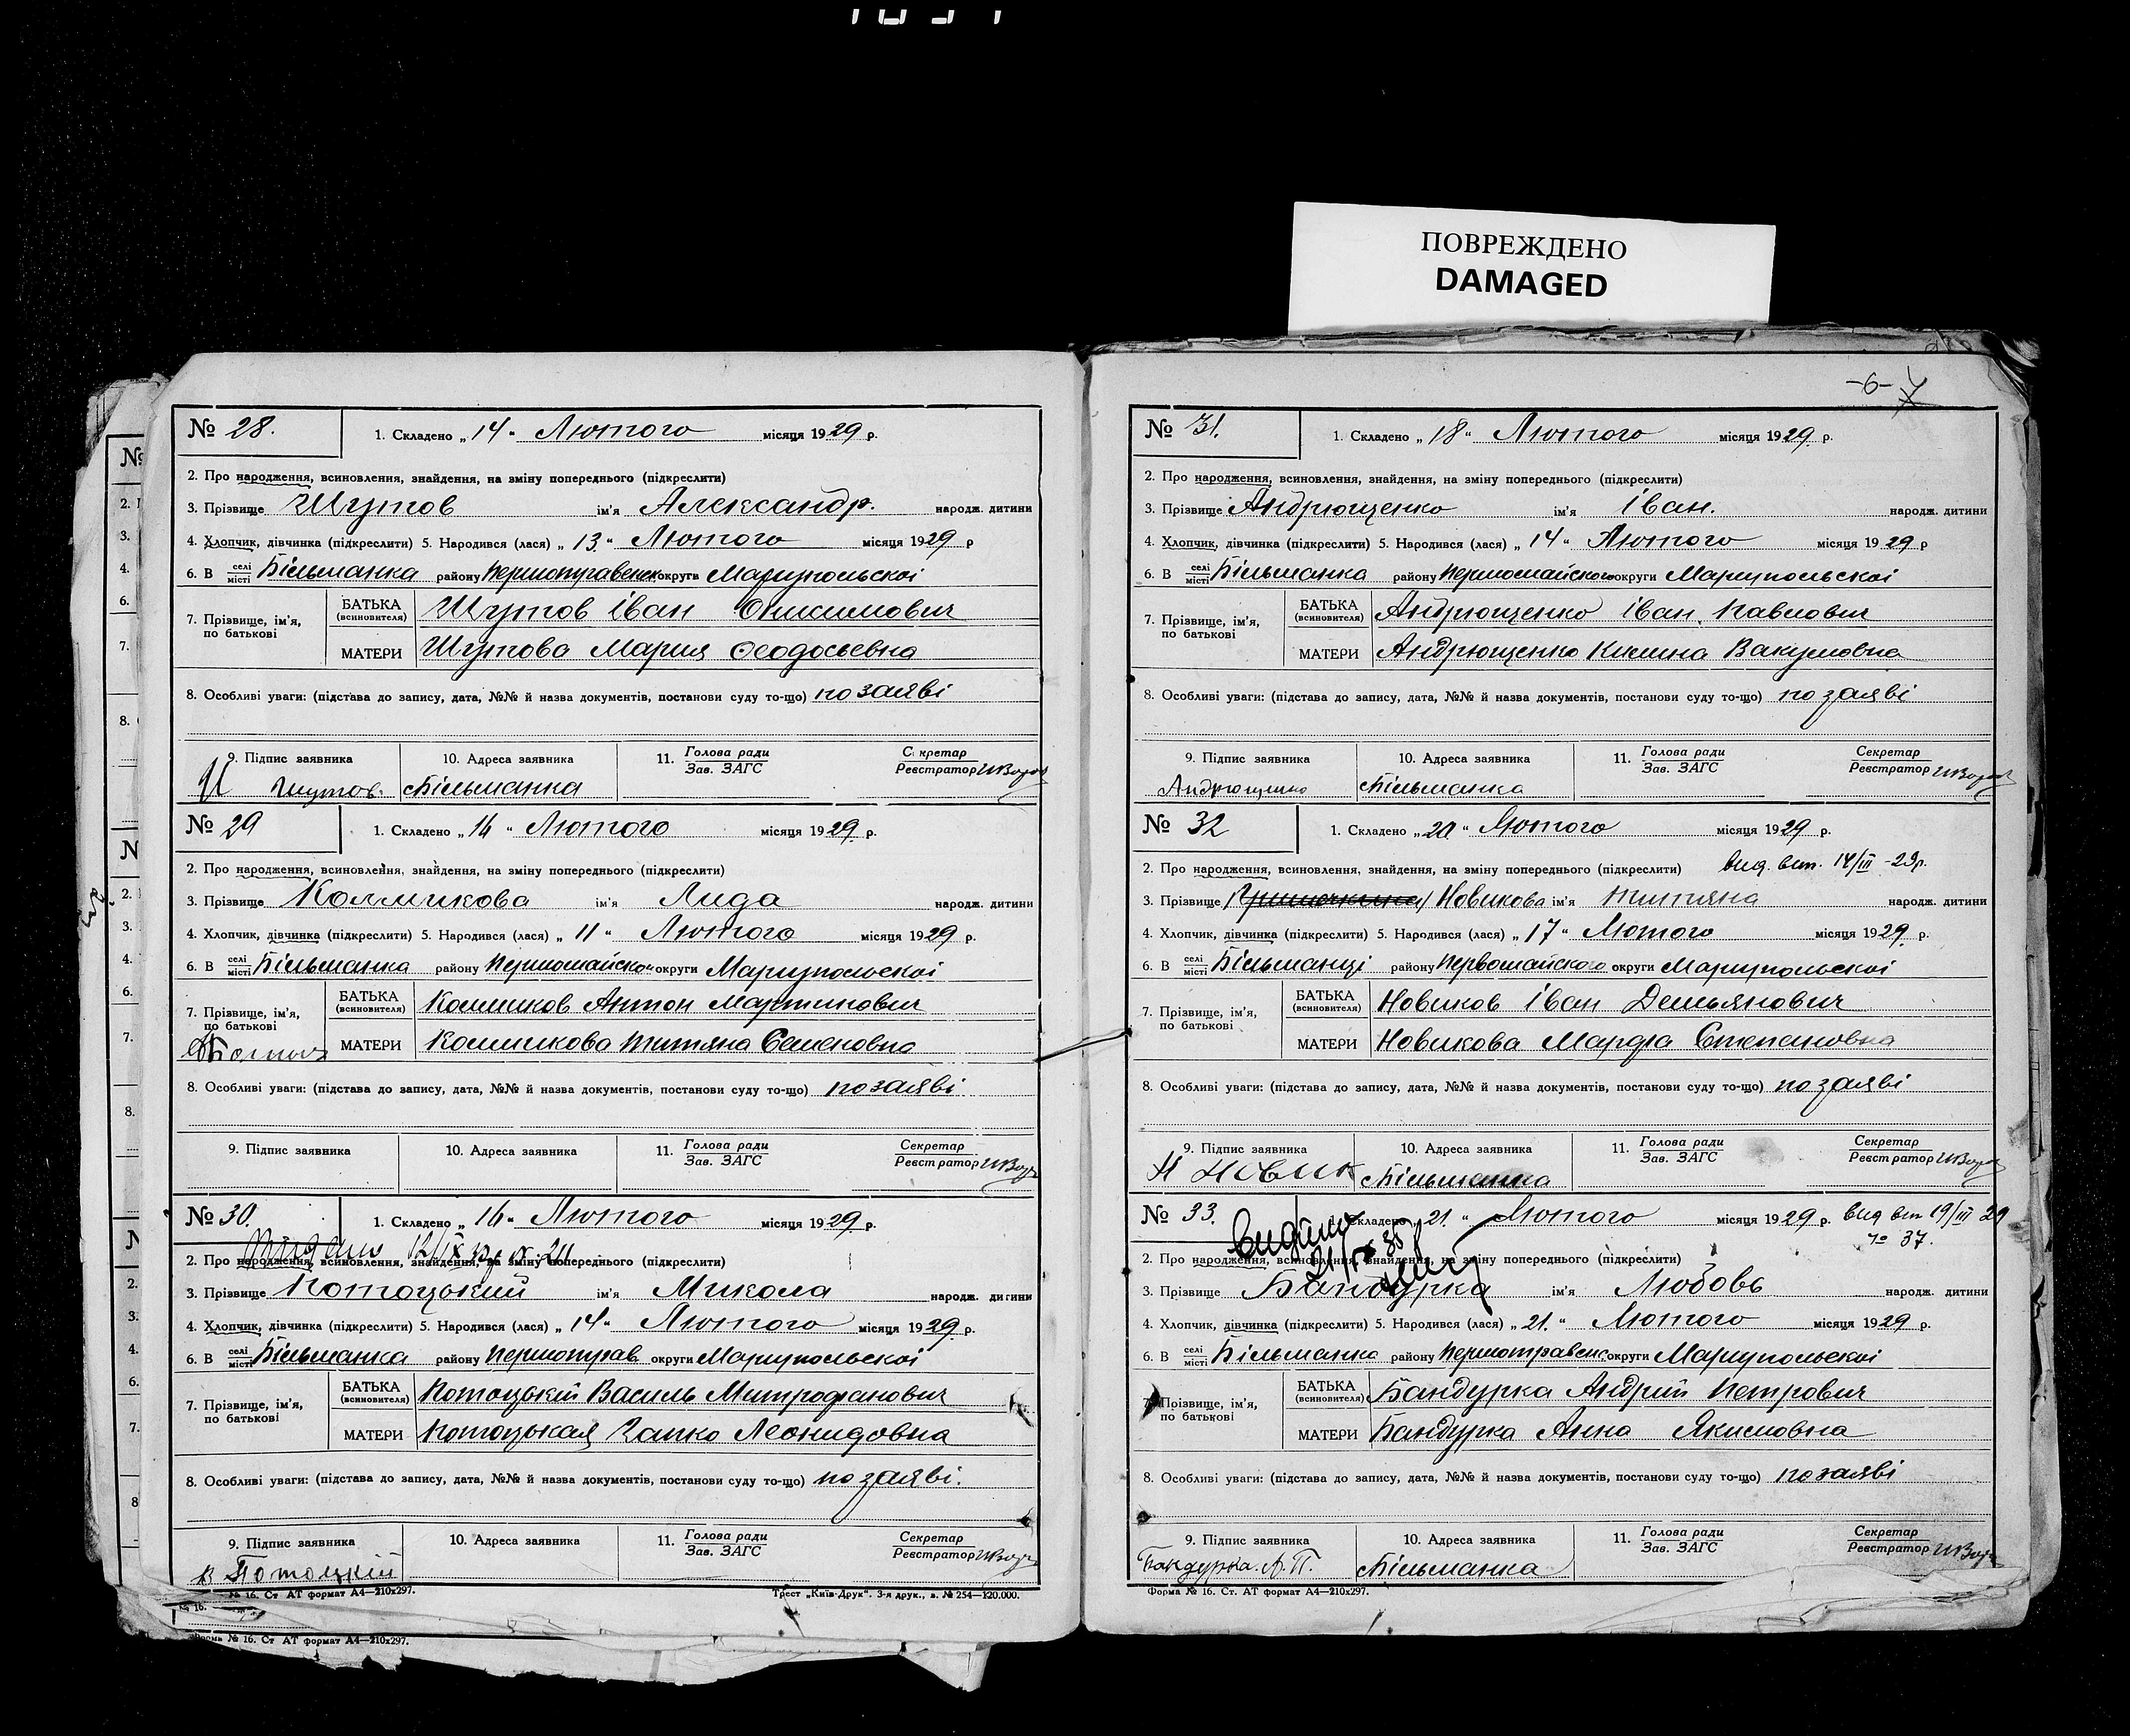 ПОВРЕЖДЕНО
DAMAGED
№ 28.
1. Складено „14“ Лютого місяця 1929 р.
2. Про народження, всиновлення, знайдення, на зміну попереднього (підкреслити)
3. Прізвище Шутов ім'я Александр. народж. дитини
4. Хлопчик, дівчинка (підкреслити) 5. Народився (лася) „13“ Лютого місяця 1929 р
6. В селі місті Більманка району Першотравенск округи Маріупольскоі
7. Прізвище, ім'я, по батькові
БАТЬКА (всиновителя) Шутов Іван Онисимович
МАТЕРИ Шутова Мария Феодосьевна
8. Особливі уваги: (підстава до запису, дата, №№ й назва документів, постанови суду то-що) по заяві
9. Підпис заявника 10. Адреса заявника 11. Голова ради Зав. ЗАГС Секретар Реєстратор
И Шутов. Більманка
№ 29
1. Складено „16“ Лютого місяця 1929 р.
2. Про народження, всиновлення, знайдення, на зміну попереднього (підкреслити)
3. Прізвище Колмикова ім'я Лида народж. дитини
4. Хлопчик, дівчинка (підкреслити) 5. Народився (лася) „11“ Лютого місяця 1929 р.
6. В селі місті Більманка району Першомайско округи Маріупольскоі
7. Прізвище, ім'я, по батькові
БАТЬКА (всиновителя) Колмиков Антон Мартинович
МАТЕРИ Колмикова Титяна Семеновна
8. Особливі уваги: (підстава до запису, дата, №№ й назва документів, постанови суду то-що) по заяві
9. Підпис заявника 10. Адреса заявника 11. Голова ради Зав. ЗАГС Секретар Реєстратор
№ 30.
1. Складено „16“ Лютого місяця 1929 р.
2. Про народження, всиновлення, знайдення, на зміну попереднього (підкреслити)
3. Прізвище Потоцький ім'я Микола народж. дитини
4. Хлопчик, дівчинка (підкреслити) 5. Народився (лася) „14“ Лютого місяця 1929 р.
6. В селі місті Більманка району Першотрав округи Маріупольскоі
7. Прізвище, ім'я, по батькові
БАТЬКА (всиновителя) Потоцький Василь Митрофанович
МАТЕРИ Потоцькая Гапко Леонидовна
8. Особливі уваги: (підстава до запису, дата, №№ й назва документів, постанови суду то-що) по заяві.
9. Підпис заявника 10. Адреса заявника 11. Голова ради Зав. ЗАГС Секретар Реєстратор
В Потоцкій
№ 16. Ст АТ формат А4—210х297. Трест „Київ-Друк“. 3-я друк., в. № 254—120.000.
№ 16.
Форма № 16. Ст АТ формат А4—210х297.
-6- 7
№ 31.
1. Складено „18“ Лютого місяця 1929 р.
2. Про народження, всиновлення, знайдення, на зміну попереднього (підкреслити)
3. Прізвище Андрющенко ім'я Іван. народж. дитини
4. Хлопчик, дівчинка (підкреслити) 5. Народився (лася) „14“ Лютого місяця 1929 р
6. В селі місті Більманка району Першомайского округи Маріупольскоі
7. Прізвище, ім'я, по батькові
БАТЬКА (всиновителя) Андрющенко Іван Павлович
МАТЕРИ Андрющенко Килина Вакуловна
8. Особливі уваги: (підстава до запису, дата, №№ й назва документів, постанови суду то-що) по заяві
9. Підпис заявника 10. Адреса заявника 11. Голова ради Зав. ЗАГС Секретар Реєстратор
Андрющенко Більманка
№ 32
1. Складено „20“ Лютого місяця 1929 р.
2. Про народження, всиновлення, знайдення, на зміну попереднього (підкреслити) вид. вит. 14/III-29р.
3. Прізвище Новикова ім'я Титяна народж. дитини
4. Хлопчик, дівчинка (підкреслити) 5. Народився (лася) „17“ Лютого місяця 1929 р.
6. В селі місті Більманці району Первомайского округи Маріупольскоі
7. Прізвище, ім'я, по батькові
БАТЬКА (всиновителя) Новиков Іван Демьянович
МАТЕРИ Новикова Марфа Степановна
8. Особливі уваги: (підстава до запису, дата, №№ й назва документів, постанови суду то-що) по заяві
9. Підпис заявника 10. Адреса заявника 11. Голова ради Зав. ЗАГС Секретар Реєстратор
И Новик Більманка
№ 33.
1. Складено „21.“ Лютого місяця 1929 р. вид вит 19/III 29
№ 37.
2. Про народження, всиновлення, знайдення, на зміну попереднього (підкреслити)
3. Прізвище Бандурка ім'я Любовь народж. дитини
4. Хлопчик, дівчинка (підкреслити) 5. Народився (лася) „21.“ Лютого місяця 1929 р.
6. В селі місті Більманка району Першотравенс округи Маріупольскоі
7. Прізвище, ім'я, по батькові
БАТЬКА (всиновителя) Бандурка Андрий Петрович
МАТЕРИ Бандурка Анна Якимовна
8. Особливі уваги: (підстава до запису, дата, №№ й назва документів, постанови суду то-що) по заяві
9. Підпис заявника 10. Адреса заявника 11. Голова ради Зав. ЗАГС Секретар Реєстратор
Бандурка. А. П. Більманка
Форма № 16. Ст. АТ формат А4—210х297.